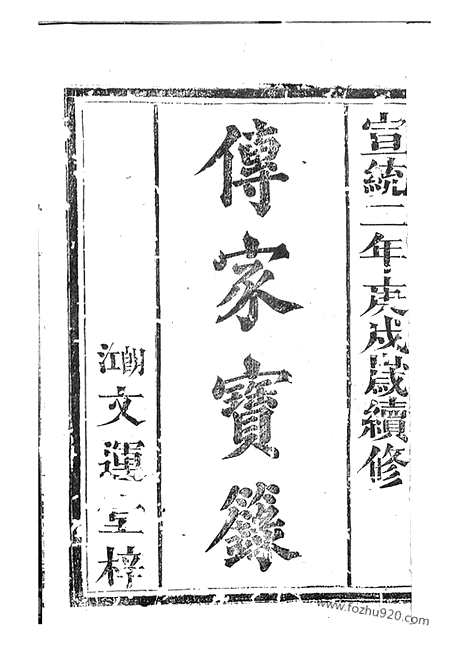 宣統二年庚戌歲續修
傳家寶籙
朗江
文運堂梓
www.fozhu920.com